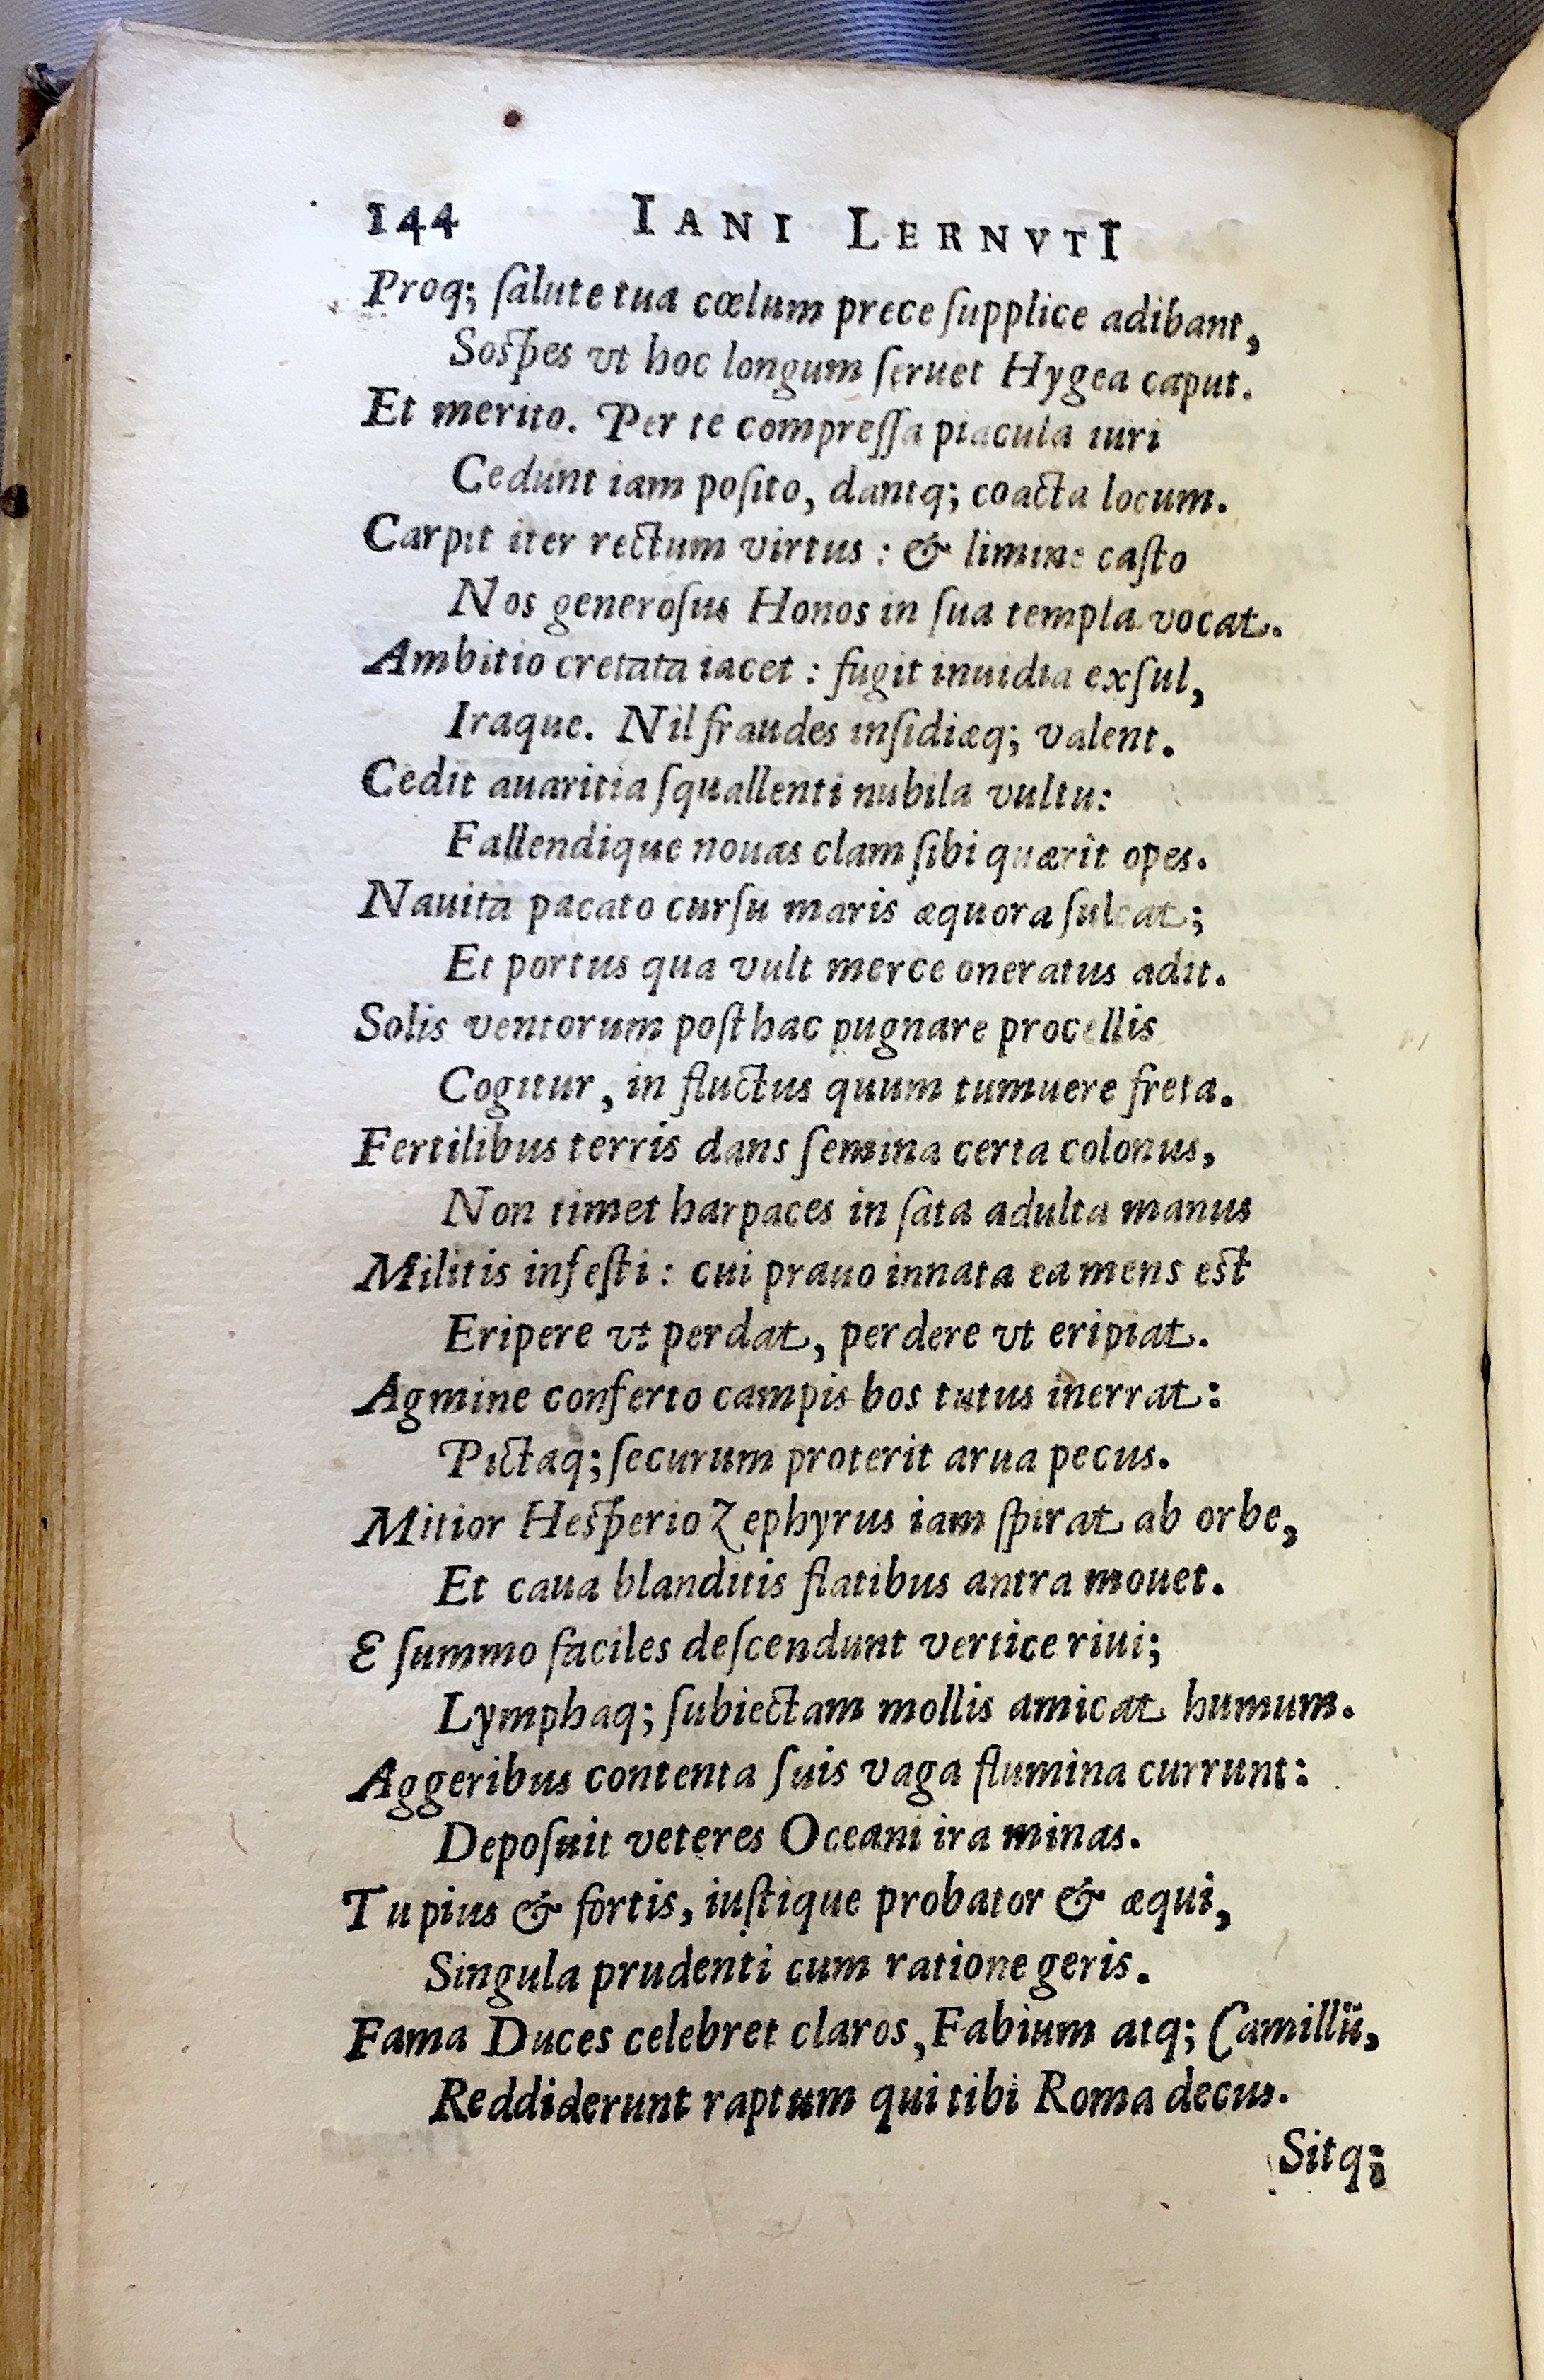 144 IANI LERNVTI
Proq; ſalute tua cœlum prece ſupplice adibant,
Soſpes vt hoc longum ſeruet Hygea caput.
Et merito. Per te compreſſa piacula iuri
Cedunt iam poſito, dantq; coacta locum.
Carpit iter rectum virtus: & limine caſto
Nos generoſus Honos in ſua templa vocat.
Ambitio cretata iacet: fugit inuidia exſul,
Iraque. Nil fraudes inſidiæq; valent.
Cedit auaritia ſquallenti nubila vultu:
Fallendique nouas clam ſibi quærit opes.
Nauita pacato curſu maris æquora ſulcat;
Et portus qua vult merce oneratus adit.
Solis ventorum poſthac pugnare procellis
Cogitur, in fluctus quum tumuere freta.
Fertilibus terris dans ſemina certa colonus,
Non timet harpaces in ſata adulta manus
Militis infeſti: cui prauo innata ea mens eſt
Eripere vt perdat, perdere vt eripiat.
Agmine conferto campis bos tutus inerrat:
Pictaq; ſecurum proterit arua pecus.
Mitior Heſperio Zephyrus iam ſpirat ab orbe,
Et caua blanditis flatibus antra mouet.
E ſummo faciles deſcendunt vertice riui;
Lymphaq; ſubiectam mollis amicat humum.
Aggeribus contenta ſuis vaga flumina currunt:
Depoſuit veteres Oceani ira minas.
Tu pius & fortis, iuſtique probator & æqui,
Singula prudenti cum ratione geris.
Fama Duces celebret claros, Fabium atq; Camillū,
Reddiderunt raptum qui tibi Roma decus.
Sitq;